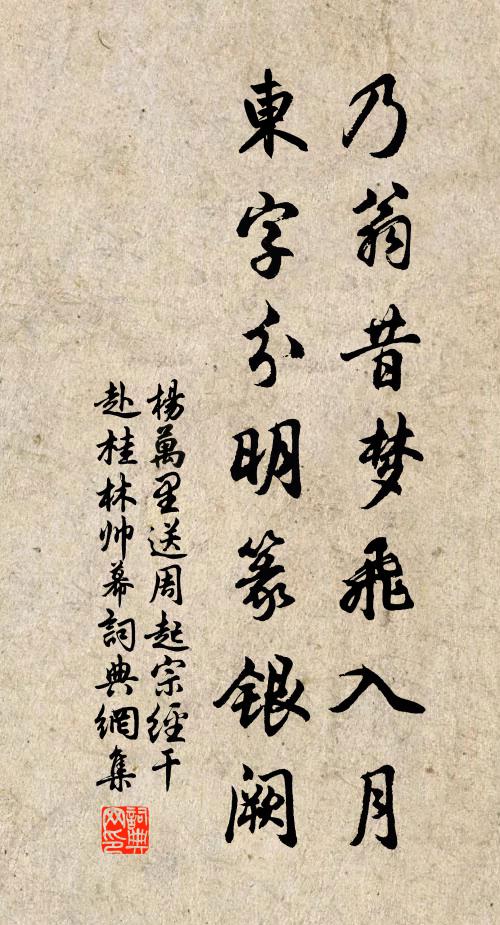 乃翁昔梦飛入月
東字分明篆银阙
楊萬里送周起宗經干
赴桂林帅幕詞典網集
詞典
网印